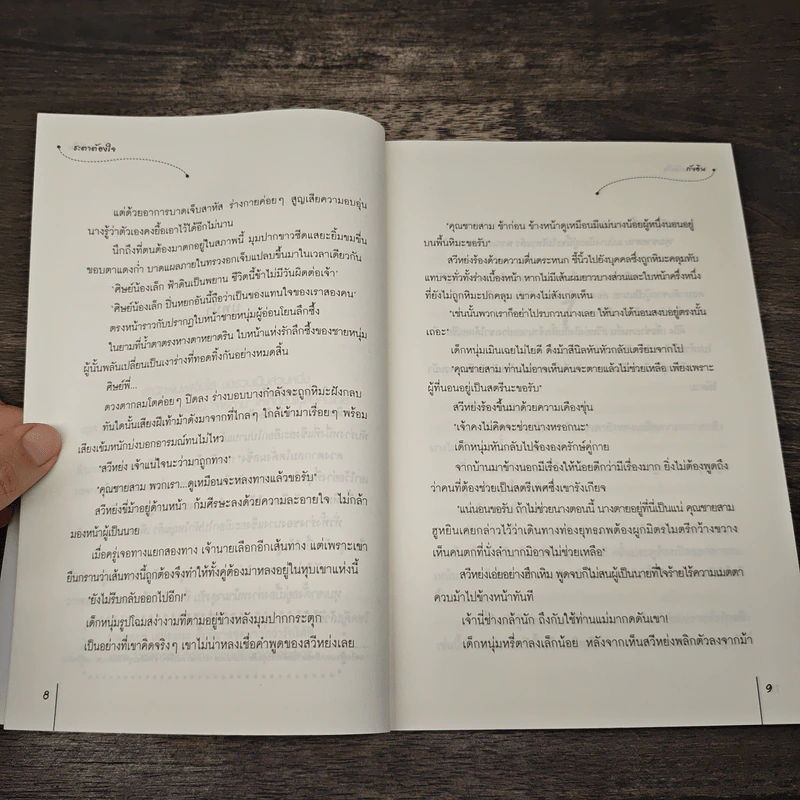 ชะตาต้องใจ
แต่ด้วยอาการบาดเจ็บสาหัส ร่างกายค่อยๆ สูญเสียความอบอุ่น
นางรู้ว่าตัวเองคงยื้อเอาไว้ได้อีกไม่นาน
นึกถึงที่ตนต้องมาตกอยู่ในสภาพนี้ มุมปากขาวซีดแสยะยิ้มขมขื่น
ขอบตาแดงก่ำ บาดแผลภายในทรวงอกเจ็บแปลบขึ้นมาในเวลาเดียวกัน
'ศิษย์น้องเล็ก ฟ้าดินเป็นพยาน ชีวิตนี้ข้าไม่มีวันผิดต่อเจ้า'
'ศิษย์น้องเล็ก ปิ่นหยกอันนี้ถือว่าเป็นของแทนใจของเราสองคน'
ตรงหน้าราวกับปรากฏใบหน้าชายหนุ่มผู้อ่อนโยนลึกซึ้ง
ในยามที่น้ำตาตรงหางตาหยาดริน ใบหน้าแห่งรักลึกซึ้งของชายหนุ่ม
ผู้นั้นพลันเปลี่ยนเป็นเงาร่างที่ทอดทิ้งกันอย่างหมดสิ้น
ศิษย์พี่...
ดวงตากลมโตค่อยๆ ปิดลง ร่างบอบบางกำลังจะถูกหิมะฝังกลบ
ทันใดนั้นเสียงฝีเท้าม้าดังมาจากที่ไกลๆ ใกล้เข้ามาเรื่อยๆ พร้อม
เสียงเข้มหนักบ่งบอกอารมณ์ทนไม่ไหว
"สวีหย่ง เจ้าแน่ใจนะว่ามาถูกทาง"
"คุณชายสาม พวกเรา...ดูเหมือนจะหลงทางแล้วขอรับ"
สวีหย่งขี่ม้าอยู่ด้านหน้า ก้มศีรษะลงด้วยความละอายใจ ไม่กล้า
มองหน้าผู้เป็นนาย
เมื่อครู่เจอทางแยกสองทาง เจ้านายเลือกอีกเส้นทาง แต่เพราะเขา
ยืนกรานว่าเส้นทางนี้ถูกต้องจึงทำให้ทั้งคู่ต้องมาหลงอยู่ในหุบเขาแห่งนี้
"ยังไม่รีบกลับออกไปอีก!"
เด็กหนุ่มรูปโฉมสง่างามที่ตามอยู่ข้างหลังมุมปากกระตุก
เป็นอย่างที่เขาคิดจริงๆ เขาไม่น่าหลงเชื่อคำพูดของสวีหย่งเลย
8
กัจชิน
"คุณชายสาม ช้าก่อน ข้างหน้าดูเหมือนมีแม่นางน้อยผู้หนึ่งนอนอยู่
บนพื้นหิมะขอรับ"
สวีหย่งร้องด้วยความตื่นตระหนก ชี้นิ้วไปยังบุคคลซึ่งถูกหิมะคลุมทับ
แทบจะทั่วทั้งร่างเบื้องหน้า หากไม่มีเส้นผมยาวบางส่วนและใบหน้าครึ่งหนึ่ง
ที่ยังไม่ถูกหิมะปกคลุม เขาคงไม่สังเกตเห็น
"เช่นนั้นพวกเราก็อย่าไปรบกวนนางเลย ให้นางได้นอนสงบอยู่ตรงนั้น
เถอะ"
เด็กหนุ่มเมินเฉยไม่ไยดี ดึงม้าสีนิลหันหัวกลับเตรียมจากไป
"คุณชายสาม ท่านไม่อาจเห็นคนจะตายแล้วไม่ช่วยเหลือ เพียงเพราะ
ผู้ที่นอนอยู่เป็นสตรีนะขอรับ"
สวีหย่งร้องขึ้นมาด้วยความเคืองขุ่น
"เจ้าคงไม่คิดจะช่วยนางหรอกนะ"
เด็กหนุ่มหันกลับไปจ้ององครักษ์คู่กาย
จากบ้านมาข้างนอกมีเรื่องให้น้อยดีกว่ามีเรื่องมาก ยิ่งไม่ต้องพูดถึง
ว่าคนที่ต้องช่วยเป็นสตรีเพศซึ่งเขารังเกียจ
"แน่นอนขอรับ ถ้าไม่ช่วยนางตอนนี้ นางตายอยู่ที่นี่เป็นแน่ คุณชายสาม
ฮูหยินเคยกล่าวไว้ว่าเดินทางท่องยุทธภพต้องผูกมิตรไมตรีกว้างขวาง
เห็นคนตกที่นั่งลำบากมิอาจไม่ช่วยเหลือ"
สวีหย่งเอ่ยอย่างฮึกเหิม พูดจบก็ไม่สนผู้เป็นนายที่ใจร้ายไร้ความเมตตา
ควบม้าไปข้างหน้าทันที
เจ้านี่ช่างกล้านัก ถึงกับใช้ท่านแม่มากดดันเขา!
เด็กหนุ่มหรี่ตาลงเล็กน้อย หลังจากเห็นสวีหย่งพลิกตัวลงจากม้า
9